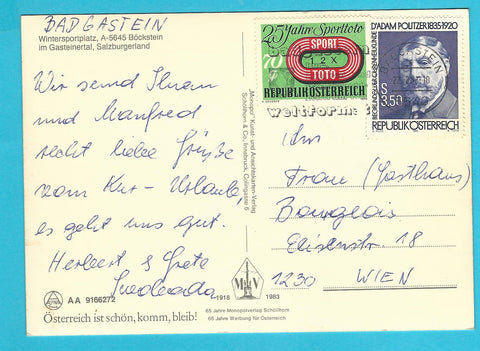 BADGASTEIN
Wintersportplatz, A-5645 Böckstein
im Gasteinertal, Salzburgerland
Wir send Ihnen
und Manfred
recht liebe Grüße
vom Kur-Urlaub,
es geht uns gut.
Herbert & Grete
AA 9166272
Österreich ist schön, komm, bleib!
„Monopol“ Kunst- und Ansichtskarten-Verlag
Schöllhorn & Co., Innsbruck, Colingasse 6
1918 1983
65 Jahre Monopolverlag Schöllhorn
65 Jahre Werbung für Österreich
25 Jahre Sporttoto
70
SPORT
1 2 X
TOTO
REPUBLIK ÖSTERREICH
weltform
D'ADAM POLITZER 1835-1920
S
3.50
REPUBLIK ÖSTERREICH
Frau (Gasthaus)
Bourgeois
18
1230 WIEN